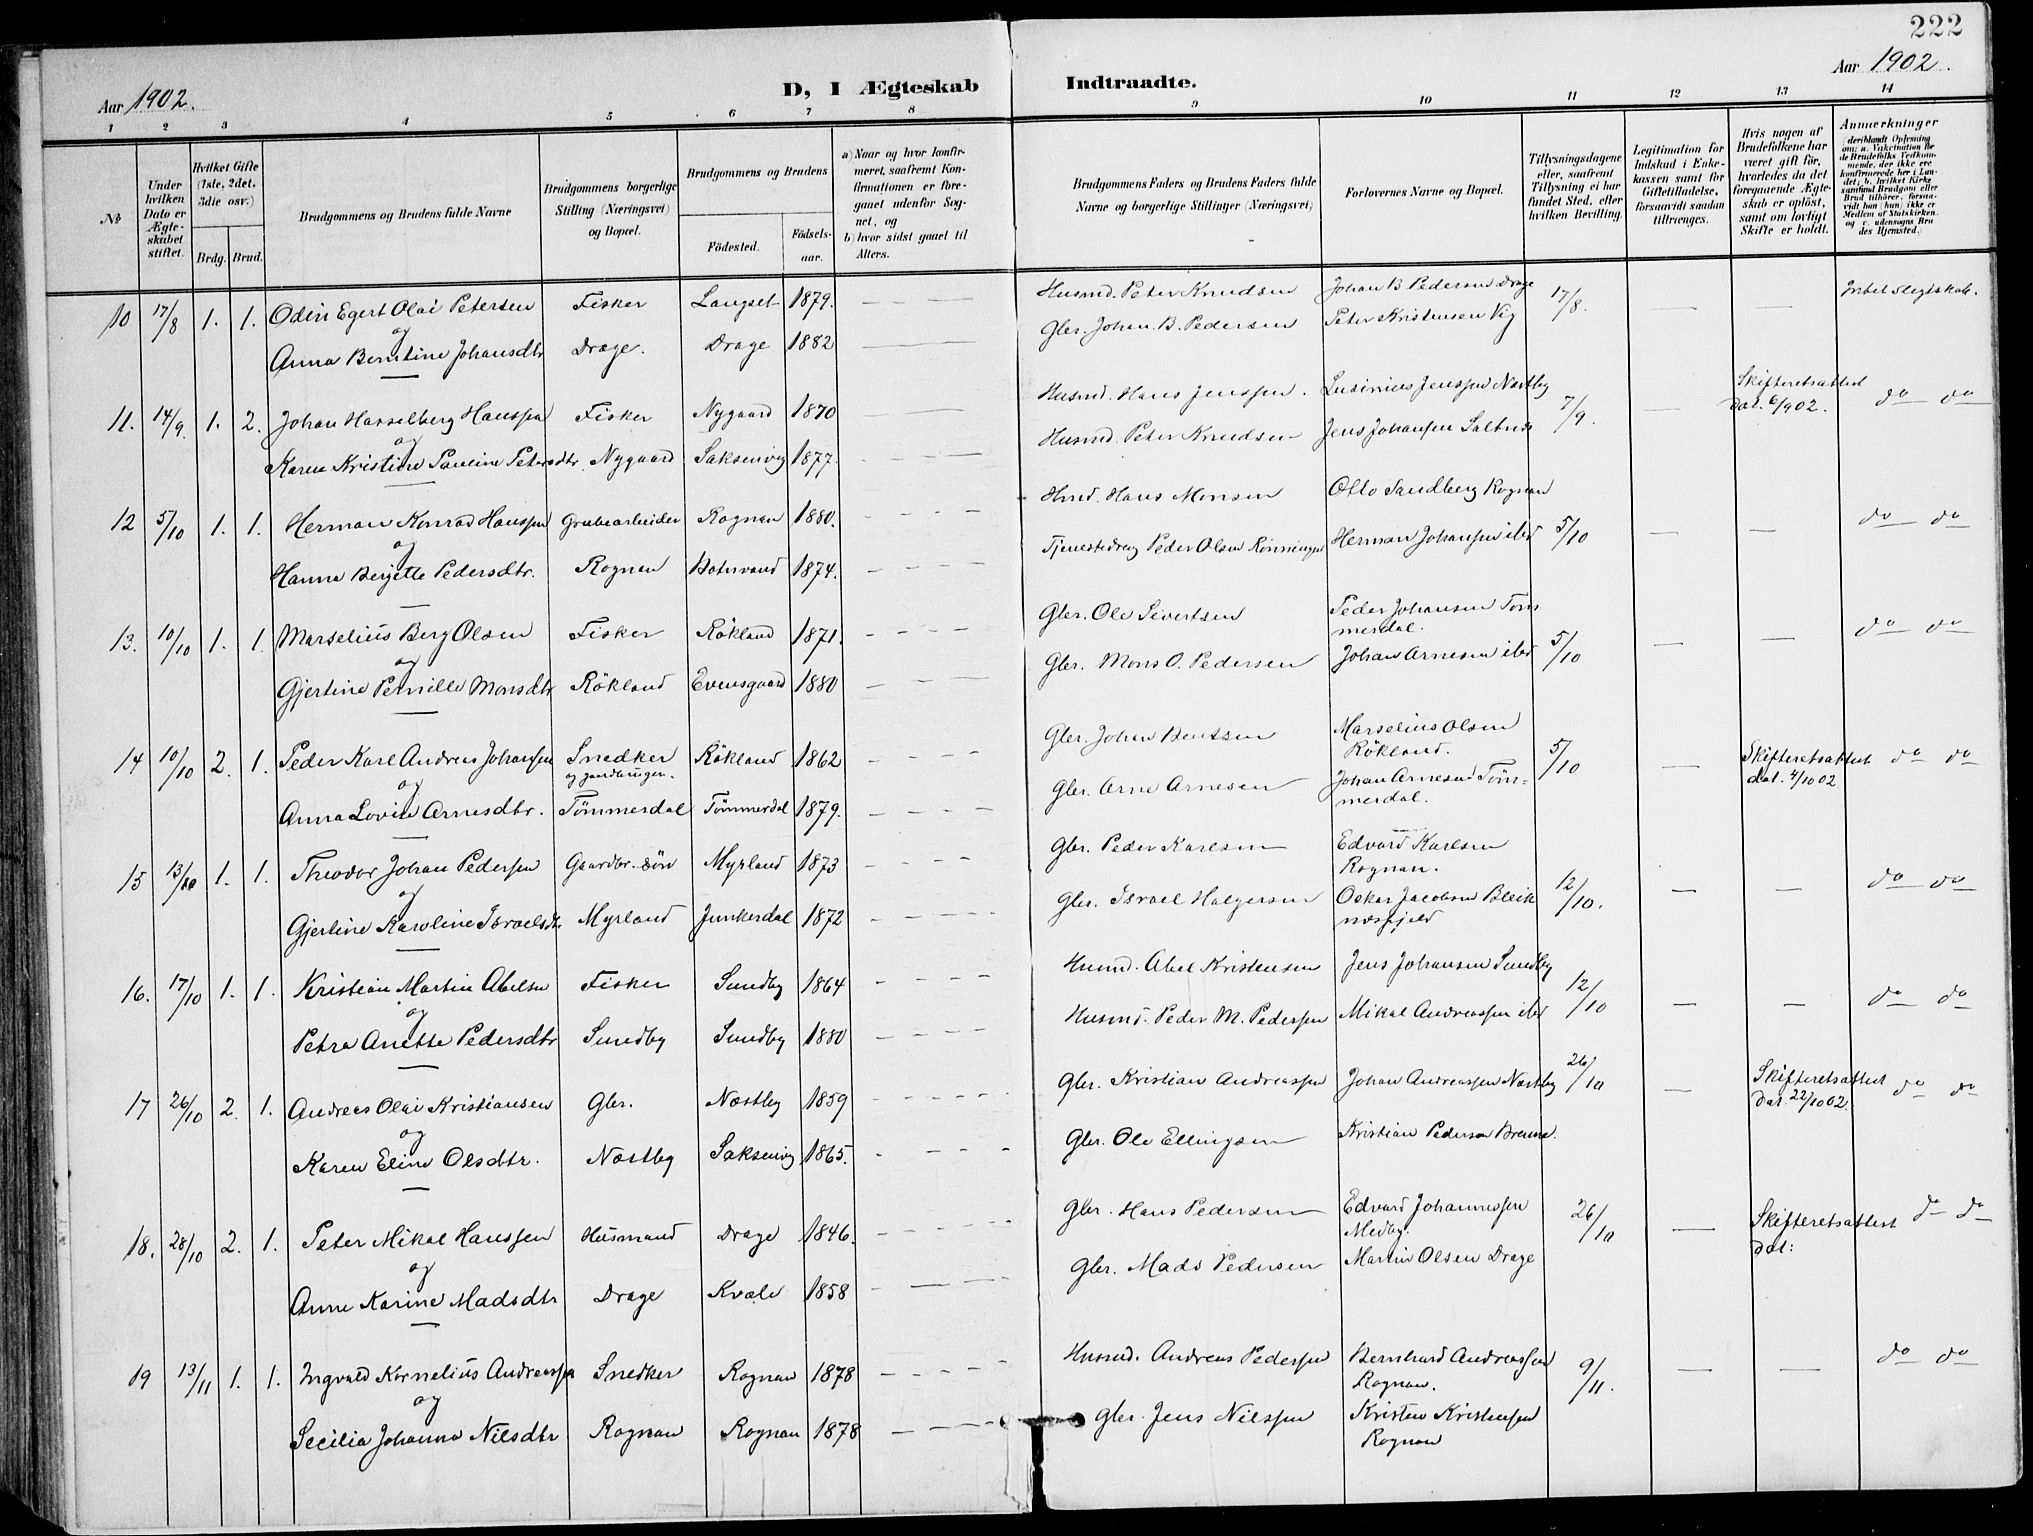 222
Aar 1902.
D, I Ægteskab Indtraadte.
Aar 1902.
1 2 3 4 5 6 7 8 9 10 11 12 13 14
No
Under hvilken Dato er Ægteskabet stiftet.
Hvilket Gifte (1ste, 2det, 3die osv.)
Brdg. Brud.
Brudgommens og Brudens fulde Navne
Brudgommens borgerlige Stilling (Næringsvei) og Bopæl.
Brudgommens og Brudens
Fødested. Fødselsaar.
a) Naar og hvor konfirmeret, saafremt Konfirmationen er foregaaet udenfor Sognet, og
b) hvor sidst gaaet til Alters.
Brudgommens Faders og Brudens Faders fulde Navne og borgerlige Stillinger (Næringsvei)
Forlovernes Navne og Bopæl.
Tillysningsdagene eller, saafremt Tillysning ei har fundet Sted, efter hvilken Bevilling.
Legitimation for Indskud i Enkekassen samt for Giftetilladelse, forsaavidt saadan tiltrænges.
Hvis nogen af Brudefolkene har været gift før, hvorledes da det foregaaende Ægteskab er opløst, samt om lovligt Skifte er holdt.
Anmerkninger
(deriblandt Oplysning om: a. Vakcination for de Brudefolks Vedkommende, der ikke ere konfirmerede her i Landet; b. hvilket Kirkesamfund Brudgom eller Brud tilhører, forsaavidt han (hun) ikke er Medlem af Statskirken. og c. udensogns Brudes Hjemsted.)
10 17/8 1. 1. Odin Egert Olai Petersen Fisker Langset 1879. Husmd. Peter Knudsen Johan B Pedersen Drage 17/8. Intet Slegtskab.
og
Anna Berntine Johansdtr Drage. Drage 1882 Gbr. Johan B. Pedersen Peter Kristensen Vig
11. 14/9. 1. 2. Johan Hasselberg Hanssen Fisker Nygaard 1870 Husmd. Hans Jenssen. Lusinius Jenssen Næstby 7/9. Skifteretsattest dat. 6/9 02. do do
og
Karen Kristine Pauline Petersdtr. Nygaard Saksenvig 1877. Husmd. Peter Knudsen Jens Johansen Saltnes
12 5/10 1. 1. Herman Konrad Hanssen Grubearbeider Rognan 1880. Hmd. Hans Monsen Otto Sandberg Rognan 5/10 do do
og
Hanna Bergette Pedersdtr. Rognan Botnvand 1874. Tjenestedreng Peder Olsen Rønningen Herman Johansen ibd
13. 10/10 1. 1. Marselius Berg Olsen Fisker Røkland 1871. Gbr. Ole Sivertsen Peder Johansen Tømmerdal. 5/10 do do
og
Gjertine Pernille Monsdtr Røkland Evensgaard 1880 Gbr. Mons O. Pedersen Johan Arnesen ibd
14 10/10 2. 1. Peder Karl Andreas Johansen Snedker og gaardbruger. Røkland 1862 Gbr. Johan Bentsen Marselius Olsen Røkland. 5/10 Skifteretsattest dat. 4/10 02 do do
og
Anna Lovise Arnesdtr. Tømmerdal Tømmerdal 1879. Gbr. Arne Arnesen Johan Arnesen Tømmerdal.
15 13/10 1. 1. Theodor Johan Pedersen Gaardbr. søn Myrland 1873 Gbr. Peder Karlsen Edvard Karlsen Rognan. 12/10. do do
og
Gjertine Karoline Israelsdtr. Myrland Junkerdal 1872 Gbr. Israel Holgersen Oskar Jacobsen Bleiknæsfjeld
16. 17/10 1. 1. Kristian Martin Abelsen Fisker Sundby 1864 Husmd. Abel Kristensen Jens Johansen Sundby 12/10 do do
og
Petra Anette Pedersdtr Sundby Sundby 1880 Husmd. Peder M. Pedersen Mikal Andreassen ibd
17 26/10 2. 1. Andreas Olai Kristiansen Gbr. Næstby 1859 Gbr. Kristian Andreassen Johan Andreassen Næstby 26/10 Skifteretsattest dat. 22/10 02. do do
og
Karen Eline Olsdtr. Næstby Saksenvig 1865. Gbr. Ole Ellingsen Kristian Pedersen Brenne.
18. 28/10 2. 1. Peter Mikal Hanssen Husmand Drage 1846. Gbr. Hans Pedersen Edvard Johannessen Medby. 26/10 Skifteretsattest dat: do do
og
Anne Karine Madsdtr Drage Kvale 1858 Gbr. Mads Pedersen Martin Olsen Drage
19 13/11 1. 1. Ingvald Kornelius Andreassen Snedker Rognan 1878 Husmd. Andreas Pedersen Bernhard Andreassen Rognan. 9/11. do do
og
Secilia Johanna Nilsdtr Rognan Rognan 1878 Gbr. Jens Nilssen Kristen Kristensen Rognan